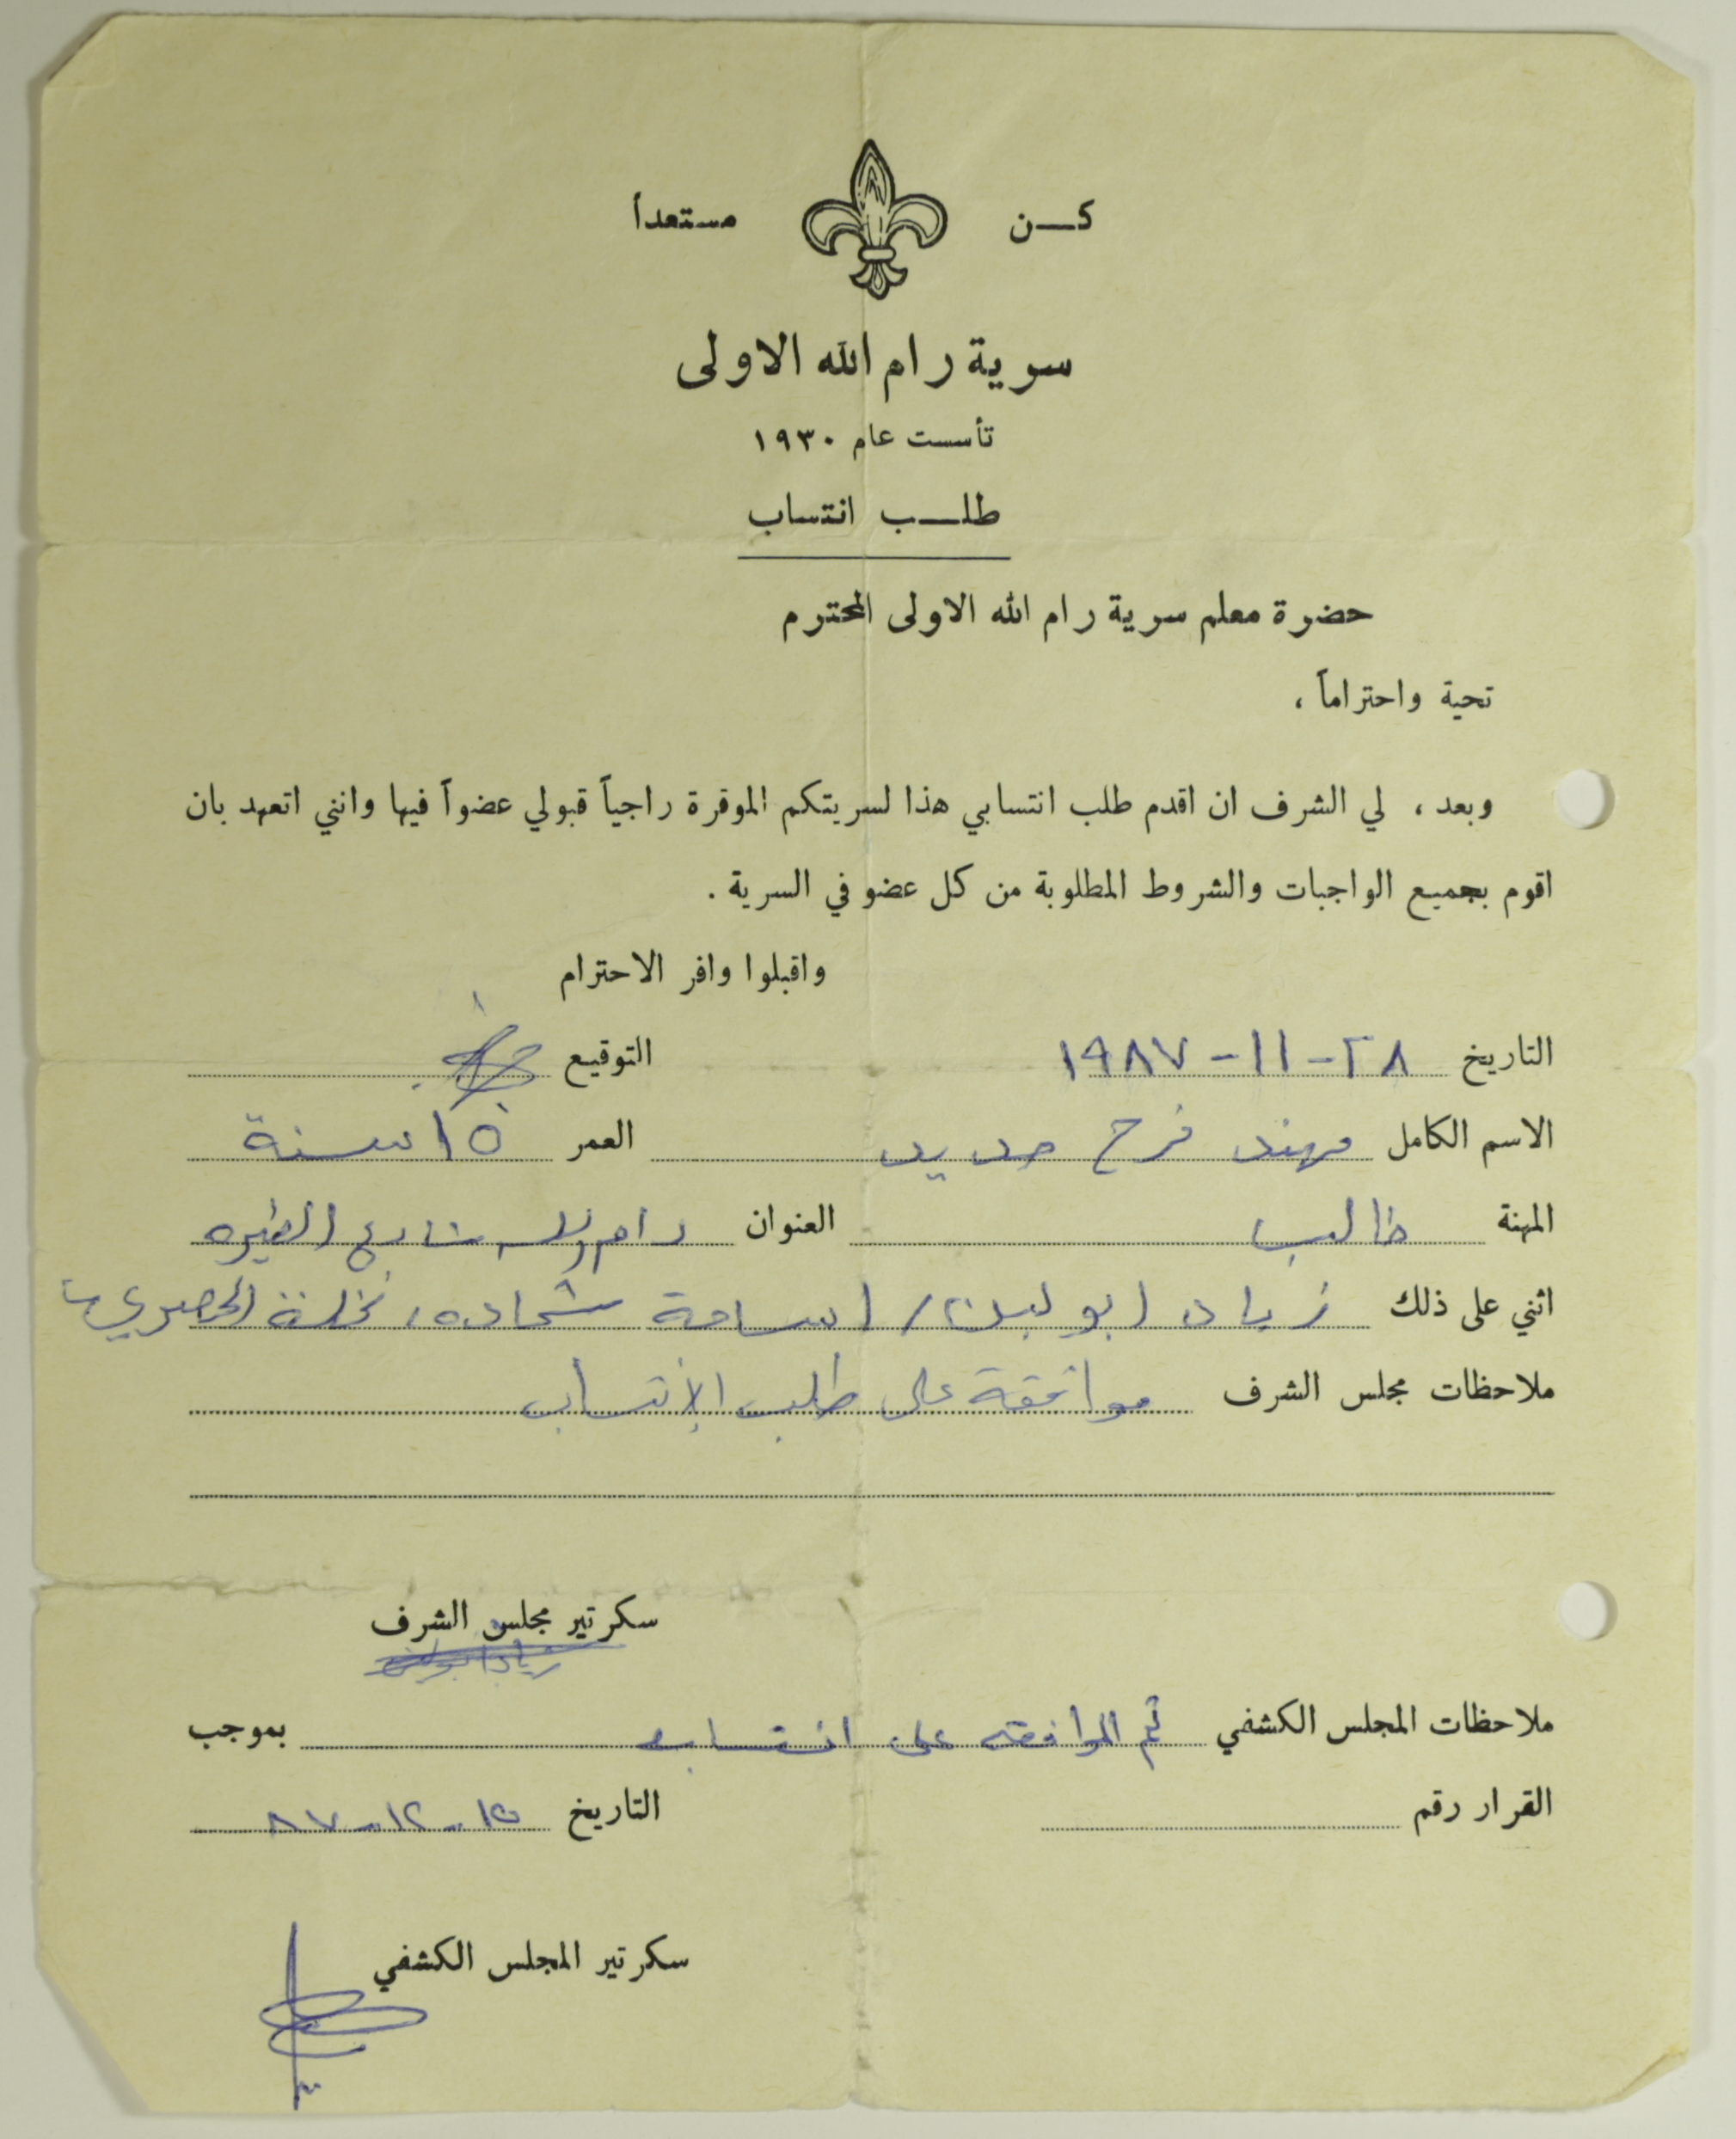 كـن مستعداً
سرية رام الله الاولى
تأسست عام ١٩٣٠
طلـب انتساب
حضرة معلم سرية رام الله الاولى المحترم
تحية واحتراماً ،
وبعد ، لي الشرف ان اقدم طلب انتسابي هذا لسريتكم الموقرة راجياً قبولي عضواً فيها وانني اتعهد بان
اقوم بجميع الواجبات والشروط المطلوبة من كل عضو في السرية .
واقبلوا وافر الاحترام
التاريخ ٢٨-١١-١٩٨٧ التوقيع
الاسم الكامل مهند فرح حديد العمر ١٥ سنة
المهنة طالب العنوان رام الله شارع الطيره
اثني على ذلك زياد ابو لبن / اسامة شحاده، نخلة
ملاحظات مجلس الشرف موافقة على طلب الإنتساب
سكرتير مجلس الشرف
ملاحظات المجلس الكشفي تم الموافقه على انتسابه بموجب
القرار رقم التاريخ ١٥-١٢-٨٧
سكرتير المجلس الكشفي